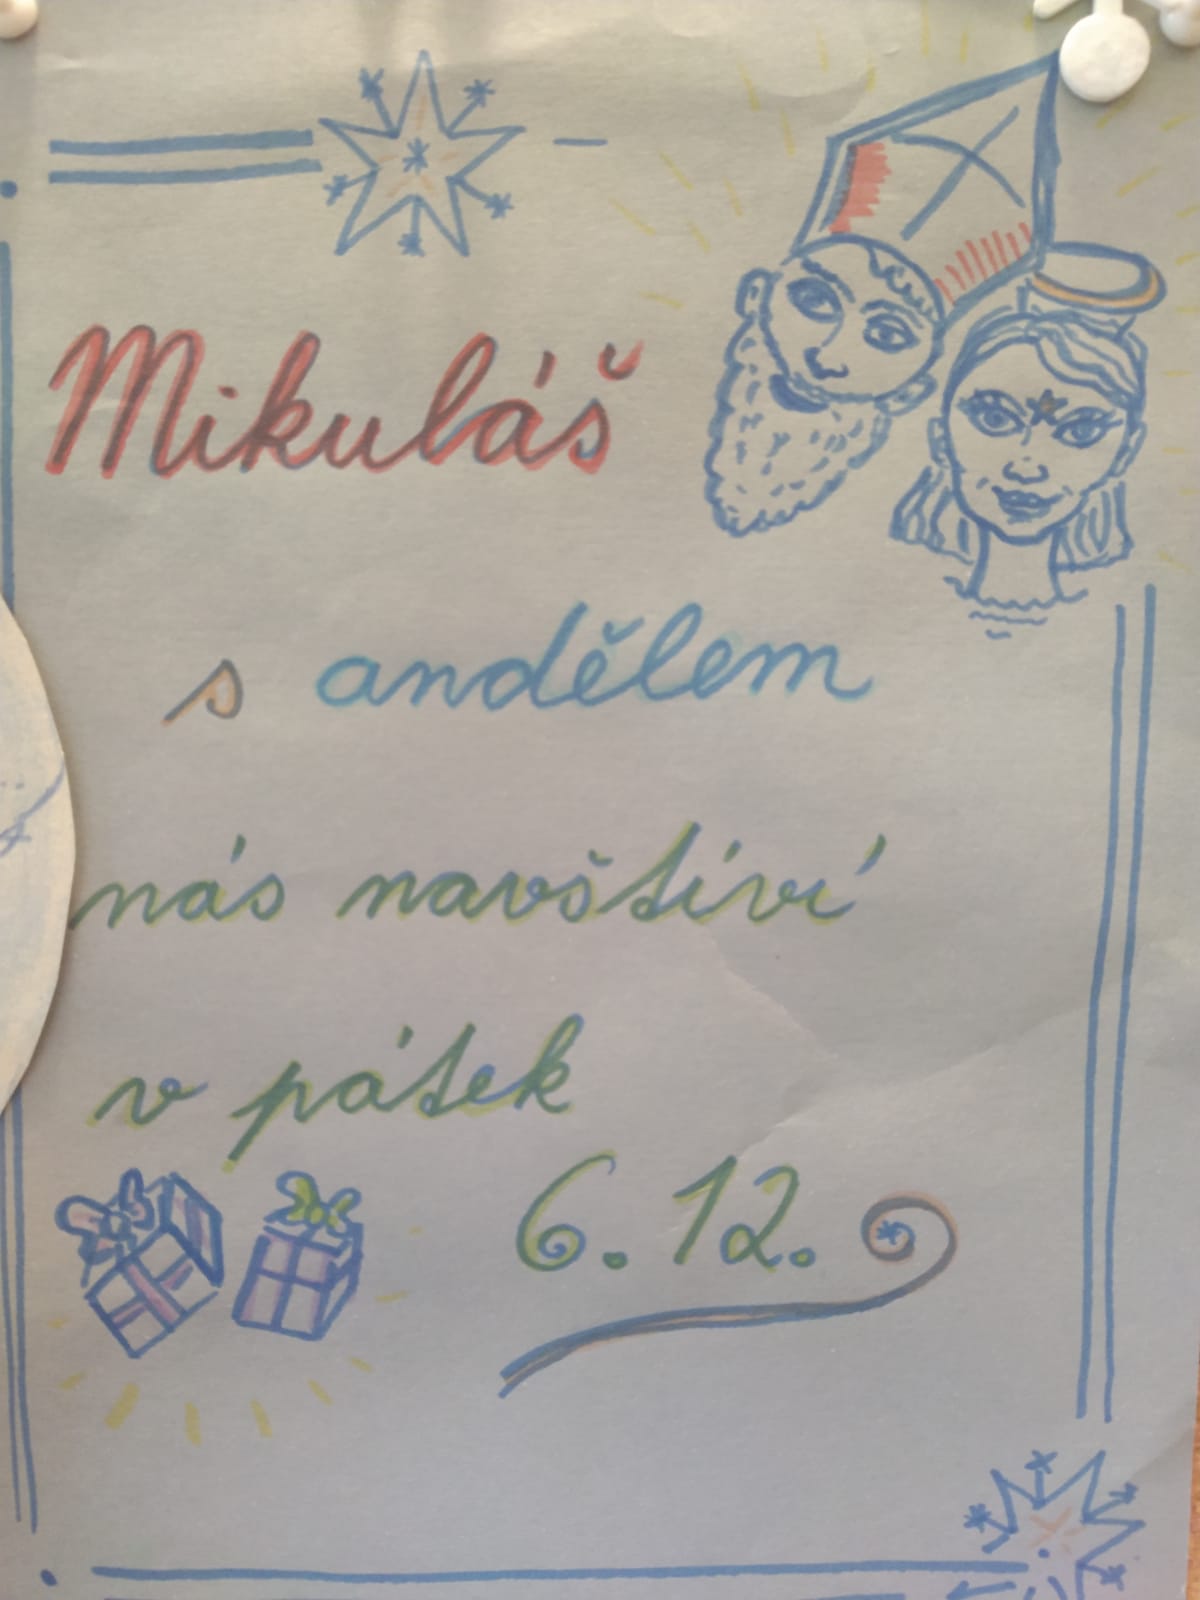 Mikuláš
s andělem
nás navštíví
v pátek
6. 12.